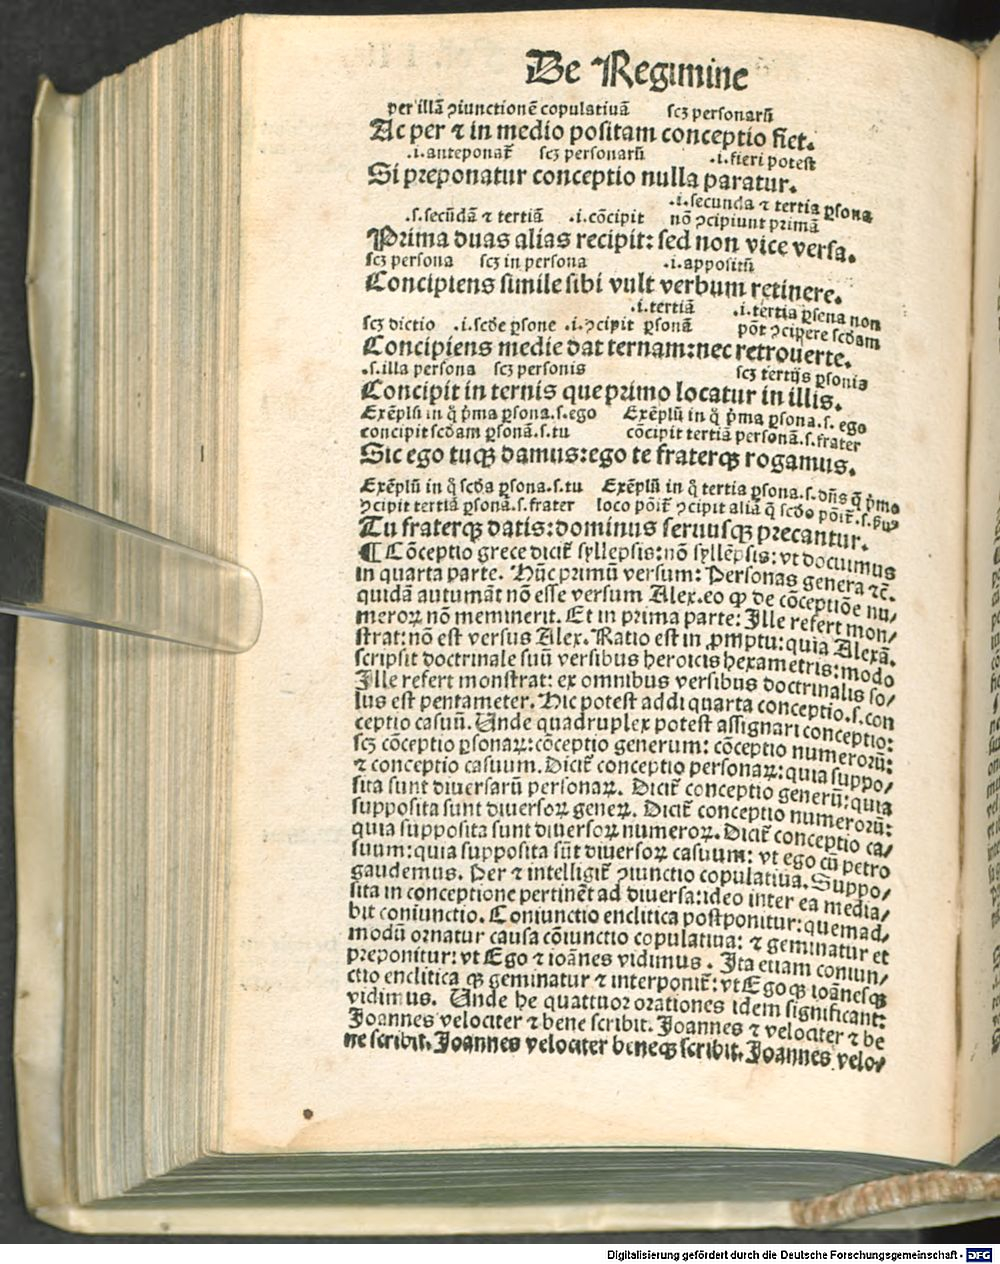 De Regimine
per illã ↄiunctionẽ copulatiuã scꝫ personarũ
Ac per ⁊ in medio positam conceptio fiet.
.i.anteponať scꝫ personarũ .i.fieri potest
Si preponatur conceptio nulla paratur.
.i.secunda ⁊ tertia ꝑsona
.s.secũdã ⁊ tertiã .i.cõcipit nõ ↄcipiunt primã
Prima duas alias recipit: sed non vice versa.
scꝫ persona scꝫ in persona .i.appositũ
Concipiens simile sibi vult verbum retinere.
.i.tertiã .i.tertia ꝑsona non
scꝫ dictio .i.scďe ꝑsone .i.ↄcipit ꝑsonã põt ↄcipere scďam
Concipiens medie dat ternam: nec retrouerte.
.s.illa persona scꝫ personis scꝫ tertijs ꝑsonis
Concipit in ternis que primo locatur in illis.
Exẽplũ in q̃ p̃ma ꝑsona.s.ego Exẽplũ in q̃ p̃ma ꝑsona.s.ego
concipit scďam ꝑsonã.s.tu cõcipit tertiã personã.s.frater
Sic ego tuqꝫ damus: ego te fraterqꝫ rogamus.
Exẽplũ in q̃ scďa ꝑsona.s.tu Exẽplũ in q̃ tertia ꝑsona.s.dñs q̃ p̃mo
ↄcipit tertiã ꝑsonã.s.frater loco põiť ↄcipit aliã q̃ scďo põiť.s.ẜuꝰ
Tu fraterqꝫ datis: dominus seruusqꝫ precantur.
¶ Cõceptio grece diciť syllepsis: nõ syllẽpsis: vt docuimus
in quarta parte. Hũc primũ versum: Personas genera ⁊c̃.
quidã autumãt nõ esse versum Alex. eo ꝙ de cõceptiõe nu/
meroꝝ nõ meminerit. Et in prima parte: Ille refert mon/
strat: nõ est versus Alex. Ratio est in ꝓmptu: quia Alexã.
scripsit doctrinale suũ versibus heroicis hexametris: modo
Ille refert monstrat: ex omnibus versibus doctrinalis so/
lus est pentameter. Hic potest addi quarta conceptio.s.con
ceptio casuũ. Unde quadruplex potest assignari conceptio:
scꝫ cõceptio ꝑsonaꝝ: cõceptio generum: cõceptio numerorũ:
⁊ conceptio casuum. Diciť conceptio personaꝝ: quia suppo/
sita sunt diuersarũ personaꝝ. Diciť conceptio generũ: quia
supposita sunt diuersoꝝ geneꝝ. Diciť conceptio numerorũ:
quia supposita sunt diuersoꝝ numeroꝝ. Diciť conceptio ca/
suum: quia supposita sũt diuersoꝝ casuum: vt ego cũ petro
gaudemus. Per ⁊ intelligiť ↄiunctio copulatiua. Suppo/
sita in conceptione pertinẽt ad diuersa: ideo inter ea media/
bit coniunctio. Coniunctio enclitica postponitur: quemad/
modũ ornatur causa cõiunctio copulatiua: ⁊ geminatur et
preponitur: vt Ego ⁊ ioãnes vidimus. Ita etiam coniun/
ctio enclitica qꝫ geminatur ⁊ interponiť: vt Egoqꝫ ioãnesqꝫ
vidimus. Unde he quattuor orationes idem significant:
Joannes velociter ⁊ bene scribit. Joannes ⁊ velociter ⁊ be
ne scribit. Joannes velociter beneqꝫ scribit. Joannes velo/
Digitalisierung gefördert durch die Deutsche Forschungsgemeinschaft - DFG